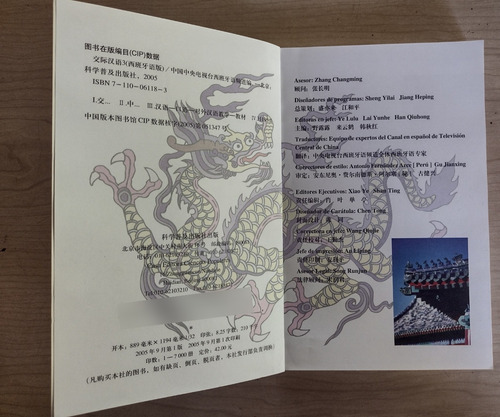 图书在版编目(CIP)数据
交际汉语3(西班牙语版)/中国中央电视台西班牙语频道编. -北京:
科学普及出版社, 2005
ISBN 7-110-06118-3
Ⅰ.交… Ⅱ.中… Ⅲ.汉语-口语-对外汉语教学-教材
中国版本图书馆CIP数据核字(2005)第 号
科学普及出版社出版
北京市海淀区中关村南大街16号
Beijing, China
Tel:010-62103210
开本: 889毫米×1194毫米1/32 印张: 8.25 字数: 210
2005年9月第1版 2005年9月第1次印刷
印数: 1-7000册 定价: 42.00元
(凡购买本社的图书, 如有缺页、倒页、脱页者, 本社发行部负责调换)
Asesor: Zhang Changming
顾问: 张长明
Diseñadores de programas: Sheng Yilai Jiang Heping
总策划: 盛亦来 江和平
Editorios en jefe: Ye Lulu Lai Yunhe Han Qiuhong
主编: 野露露 来云鹤 韩秋红
Traductores: Equipo de expertos del Canal en español de Televisión
Central de China
翻译: 中央电视台西班牙语频道全体西班牙语专家
Correctores de estilo: Antonio Fernández Arce [ Perú ] Gu Jianxing
审定: 安东尼奥·费尔南德斯·阿尔塞[ 秘 ] 古健兴
Editores Ejecutivos: Xiao Ye Shan Ting
责任编辑: 肖 叶 单 亭
Diseñador de Carátula: Chen Tong
封面设计: 陈 同
Correctora en jefe: Wang Qinjie
责任校对: 王勤杰
Jefe de impresión: An Liping
责任印制: 安利平
Asesor Legal: Song Runjun
法律顾问: 宋润君